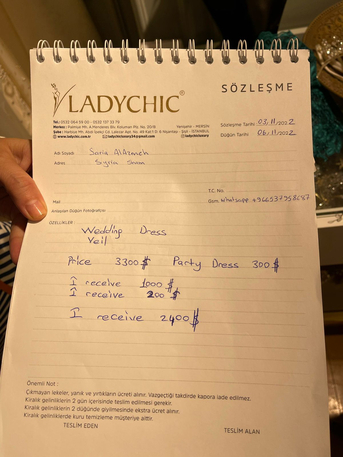 SÖZLEŞME
LADYCHIC®
Sözleşme Tarihi: 03.11.2022
Düğün Tarihi: 06.11.2022
www.ladychic.com.tr
Adı Soyadı
Adres
T.C. No.
Mail
Gsm. Whatsapp
Anlaşılan Düğün Fotoğrafçısı
ÖZELLİKLER
Wedding Dress
Veil
Price 3300 $ Party Dress 300 $
I receive 1000 $
I receive 200 $
I receive 2400 $
Önemli Not :
Çıkmayan lekeler, yanık ve yırtıkların ücreti alınır. Vazgeçtiği takdirde kapora iade edilmez.
Kiralık gelinliklerin 2 gün içerisinde teslim edilmesi gerekir.
Kiralık gelinliklerin 2 düğünde giyilmesinde ekstra ücret alınır.
Kiralık gelinliklerde kuru temizleme müşteriye aittir.
TESLİM EDEN
TESLİM ALAN